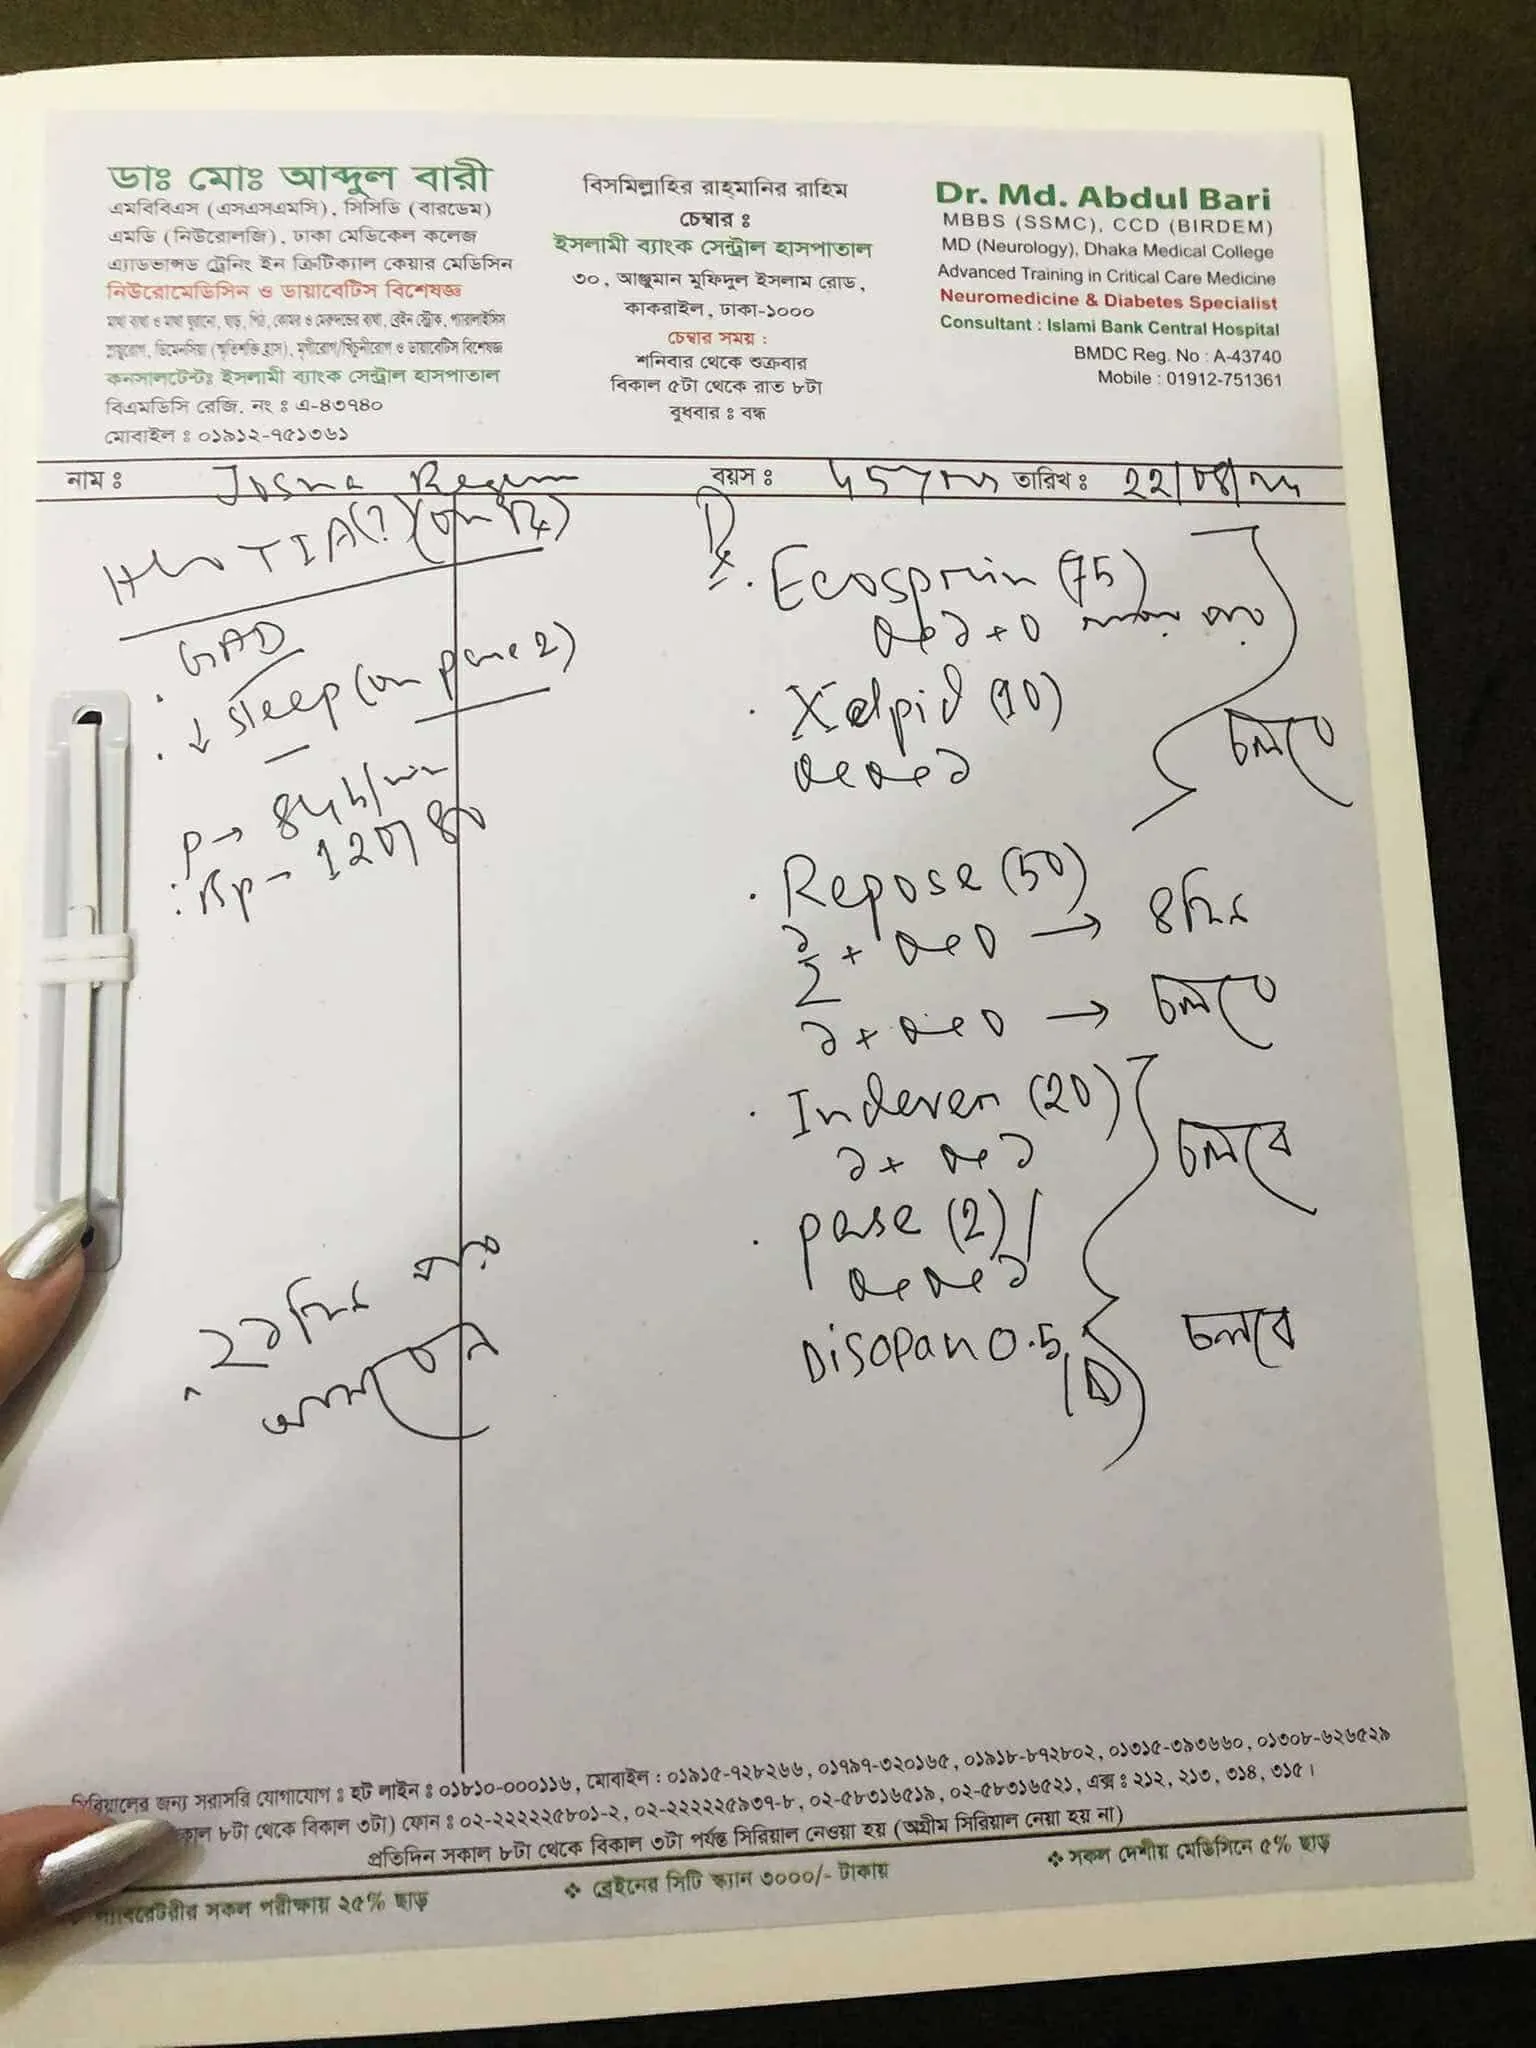 ডাঃ মোঃ আব্দুল বারী
এমবিবিএস (এসএসএমসি), সিসিডি (বারডেম)
এমডি (নিউরোলজি), ঢাকা মেডিকেল কলেজ
এ্যাডভান্সড ট্রেনিং ইন ক্রিটিক্যাল কেয়ার মেডিসিন
নিউরোমেডিসিন ও ডায়াবেটিস বিশেষজ্ঞ
মাথা ব্যথা ও মাথা ঘুরানো, ঘাড়, পিঠ, কোমর ও মেরুদন্ডের ব্যথা, ব্রেইন স্ট্রোক, প্যারালাইসিস
স্নায়ুরোগ, ডিমেনসিয়া (স্মৃতিশক্তি হ্রাস), মৃগীরোগ/খিঁচুনীরোগ ও ডায়াবেটিস বিশেষজ্ঞ
কনসালটেন্টঃ ইসলামী ব্যাংক সেন্ট্রাল হাসপাতাল
বিএমডিসি রেজি. নং ঃ এ-৪৩৭৪০
মোবাইল ঃ ০১৯১২-৭৫১৩৬১
বিসমিল্লাহির রাহ্মানির রাহিম
চেম্বার ঃ
ইসলামী ব্যাংক সেন্ট্রাল হাসপাতাল
৩০, আঞ্জুমান মুফিদুল ইসলাম রোড,
কাকরাইল, ঢাকা-১০০০
চেম্বার সময় :
শনিবার থেকে শুক্রবার
বিকাল ৫টা থেকে রাত ৮টা
বুধবার ঃ বন্ধ
Dr. Md. Abdul Bari
MBBS (SSMC), CCD (BIRDEM)
MD (Neurology), Dhaka Medical College
Advanced Training in Critical Care Medicine
Neuromedicine & Diabetes Specialist
Consultant : Islami Bank Central Hospital
BMDC Reg. No : A-43740
Mobile : 01912-751361
নাম ঃ Josna Begum বয়স ঃ 45 yrs তারিখ ঃ
H/o TIA(?) (on Rx)
GAD
↓ sleep (on pase 2)
P → 84 b/min
Bp - 120/80
২১ দিন পর
আসবেন
Rx
Ecosprin (75)
০+১+০
Xelpid (10)
০+০+১
চলবে
Repose (50)
১/২ + ০+০ → ৪ দিন
১ + ০+০ → চলবে
Indever (20)
১ + ০+১
চলবে
pase (2)
০+০+১
Disopan 0.5
চলবে
সিরিয়ালের জন্য সরাসরি যোগাযোগ ঃ হট লাইন ঃ ০১৮১০-০০০১১৬, মোবাইল : ০১৯১৫-৭২৮২৬৬, ০১৭৯৭-৩২০১৬৫, ০১৯১৮-৮৭২৮০২, ০১৩১৫-৩৯৩৬৬০, ০১৩০৮-৬২৬৫২৯
৮টা থেকে বিকাল ৩টা) ফোন ঃ ০২-২২২২২৫৮০১-২, ০২-২২২২২৫৯৩৭-৮, ০২-৫৮৩১৬৫১৯, ০২-৫৮৩১৬৫২১, এক্স ঃ ২১২, ২১৩, ৩১৪, ৩১৫।
প্রতিদিন সকাল ৮টা থেকে বিকাল ৩টা পর্যন্ত সিরিয়াল নেওয়া হয় (অগ্রীম সিরিয়াল নেয়া হয় না)
সকল পরীক্ষায় ২৫% ছাড়
❖ ব্রেইনের সিটি স্ক্যান ৩০০০/- টাকায়
❖ সকল দেশীয় মেডিসিনে ৫% ছাড়